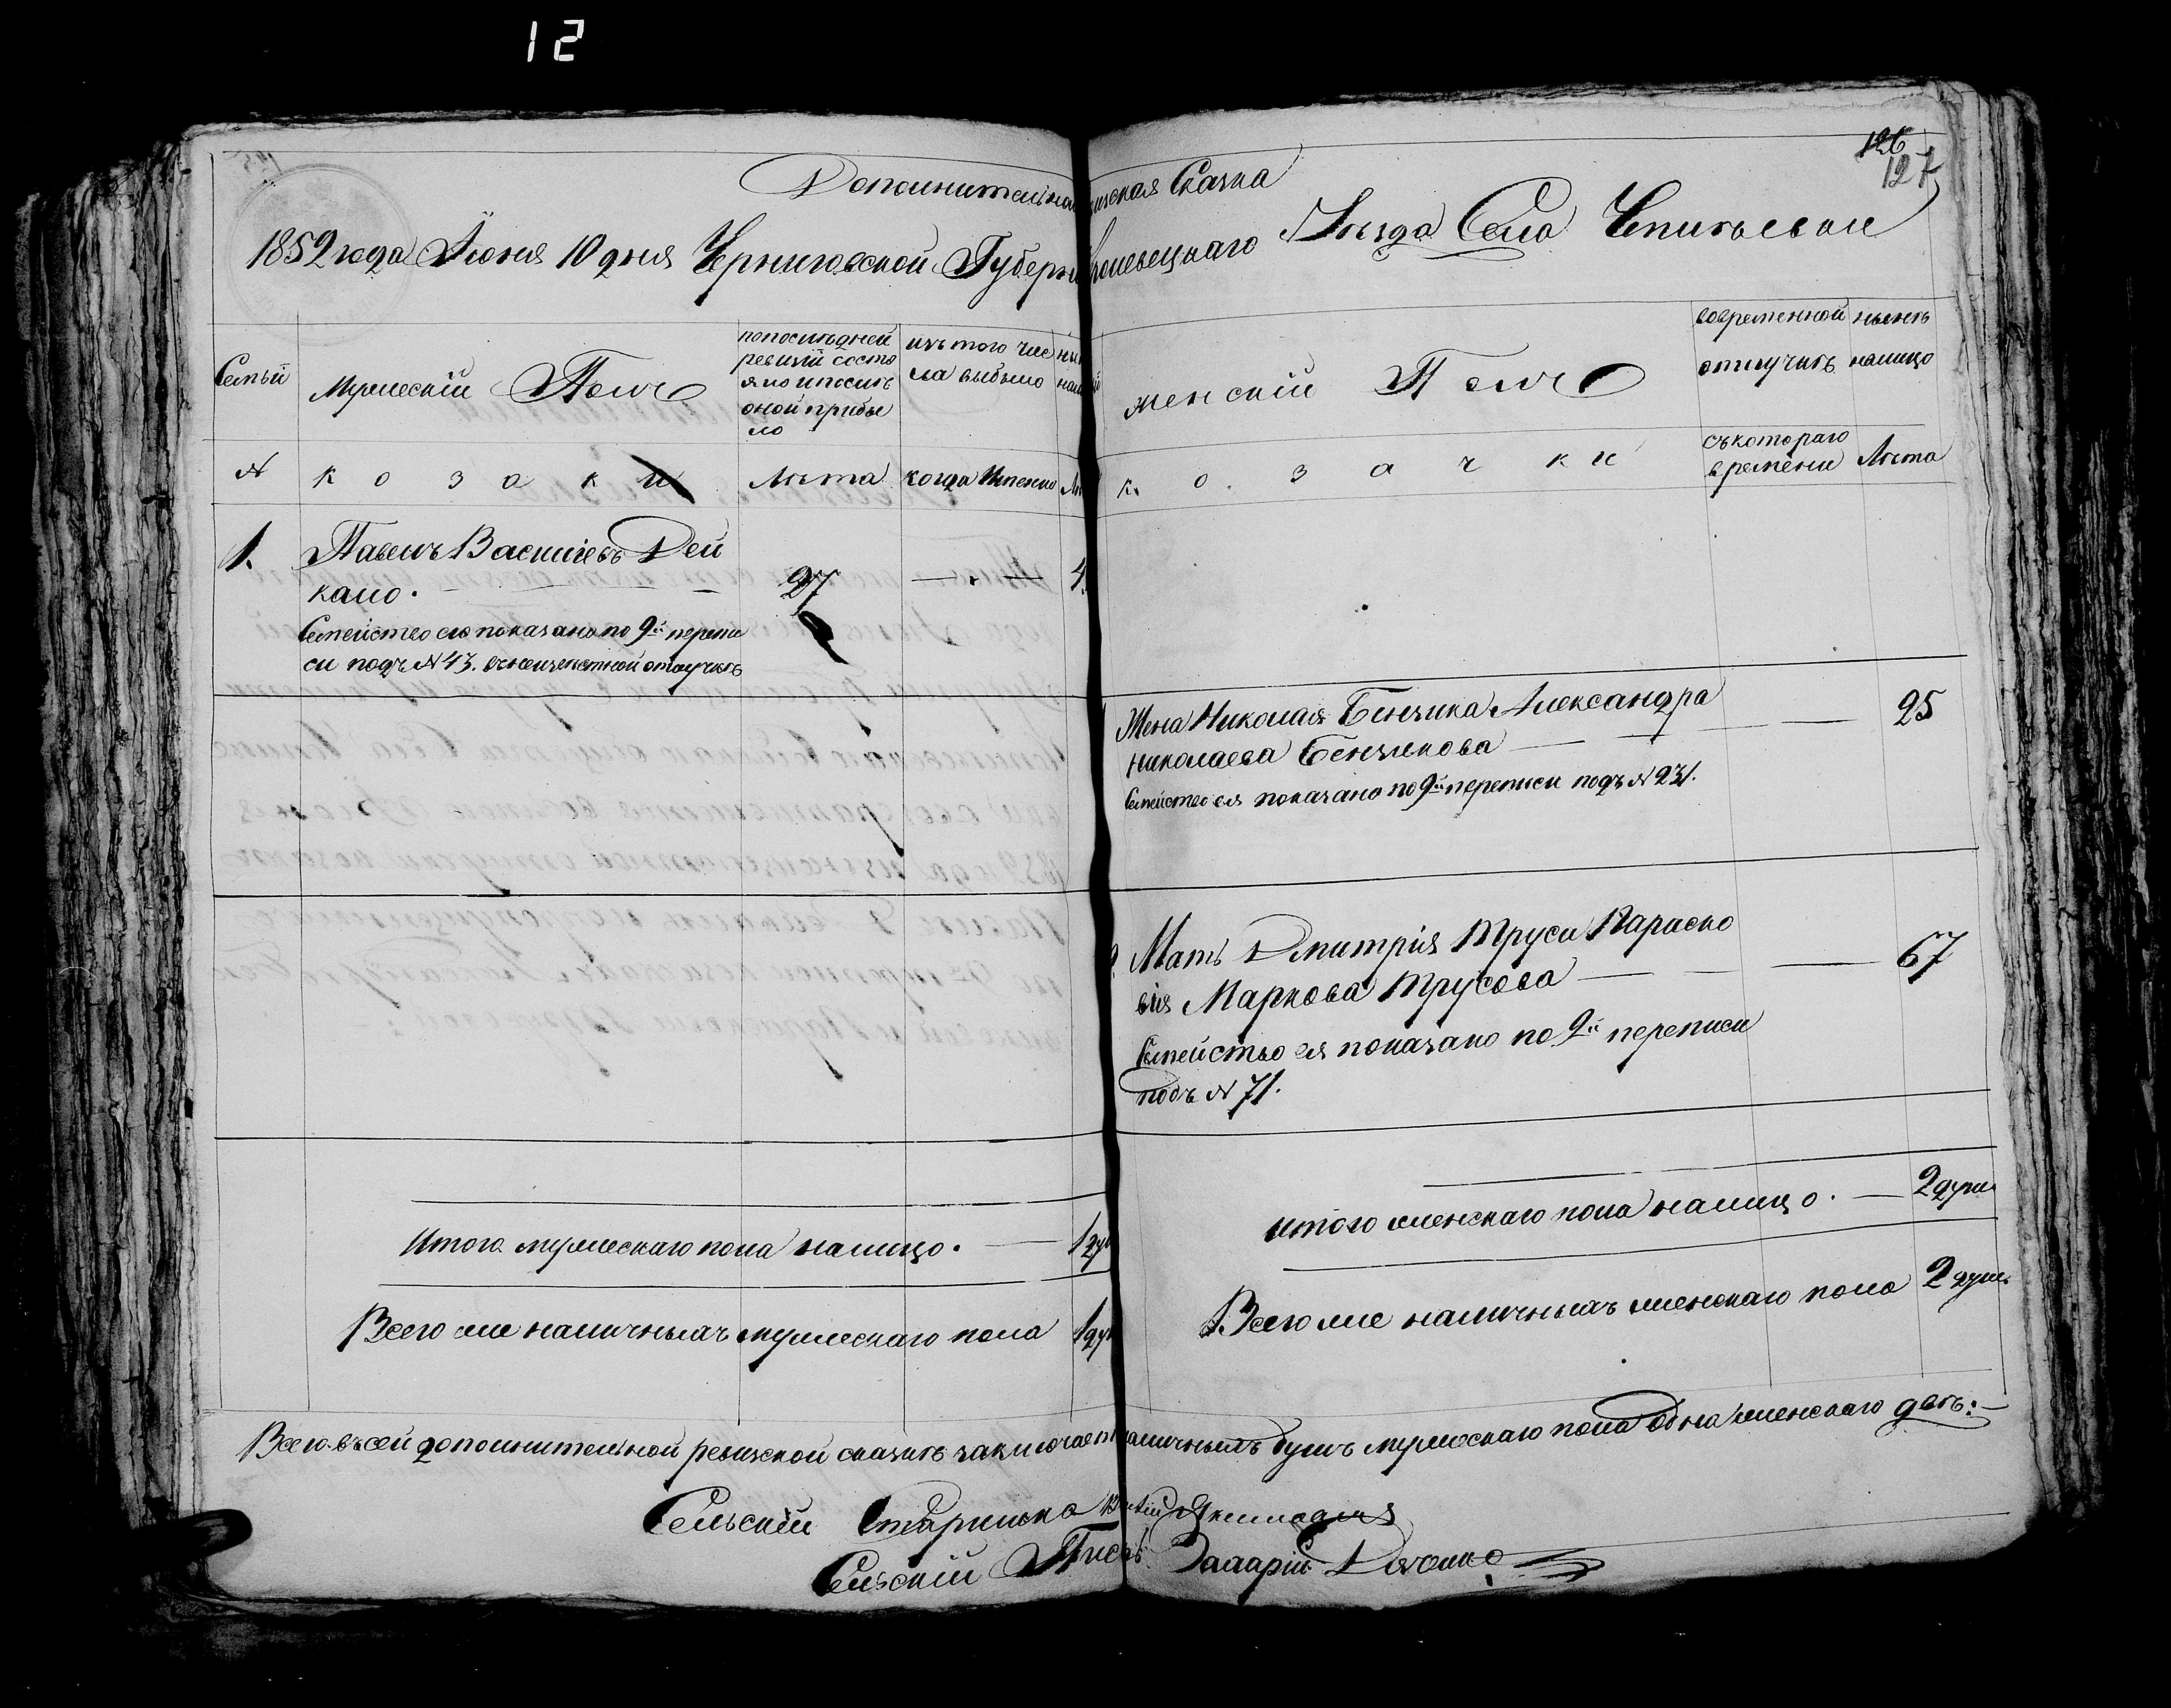 12
126
127
Дополнительная ревизская Сказка
1852 года Іюня 10 дня Черниговской Губерн Кролевецкаго Уезда Села
Семьи
Мужескій Полъ
по последней
ревизіи состо
яло и после
оной прибы
ло
изъ того чис
ла выбыло
женскій Полъ
во временной
отлучке
ныне
налицо
№
козаки
Лета
когда Именно
козачки
съ котораго
времени
Лета
1.
Павелъ Васильевъ Дей
кало.
27
Семейство его показано по 9й перепи
си подъ № 43. въ неизвестной отлучке
Жена Николая Бензика Александра
Николаева Бензикова
25
Семейство ея показано по 9й переписи подъ № 231.
Мать Дмитрія Труси Параско
вія Маркова Трусова
67
Семейство ея показано по 9й переписи
подъ № 71.
Итого мужескаго пола налицо.
1 ду
Итого женскаго пола налицо.
2 души
Всего же наличныхъ мужескаго пола
1 ду
Всего же наличныхъ женскаго пола
2 души
Всего въ сей дополнительной ревизской сказке заключает наличныхъ душъ мужескаго пола одна женскаго две:
Сельскій Старшина
Сельскій Писарь